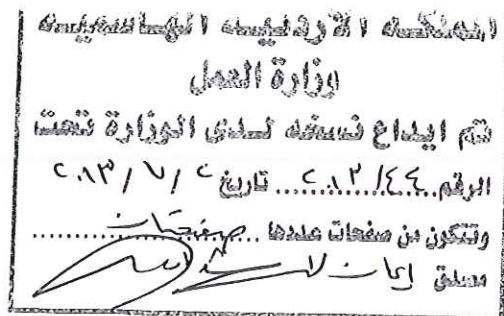 المملكة الأردنية الهاشمية
وزارة العمل
تم ايداع نسخة لدى الوزارة تحت
الرقم ٤٤/٢٠١٣ تاريخ ٢/٧/٢٠١٣
وتتكون من صفحات عددها صفحتان
مصدق